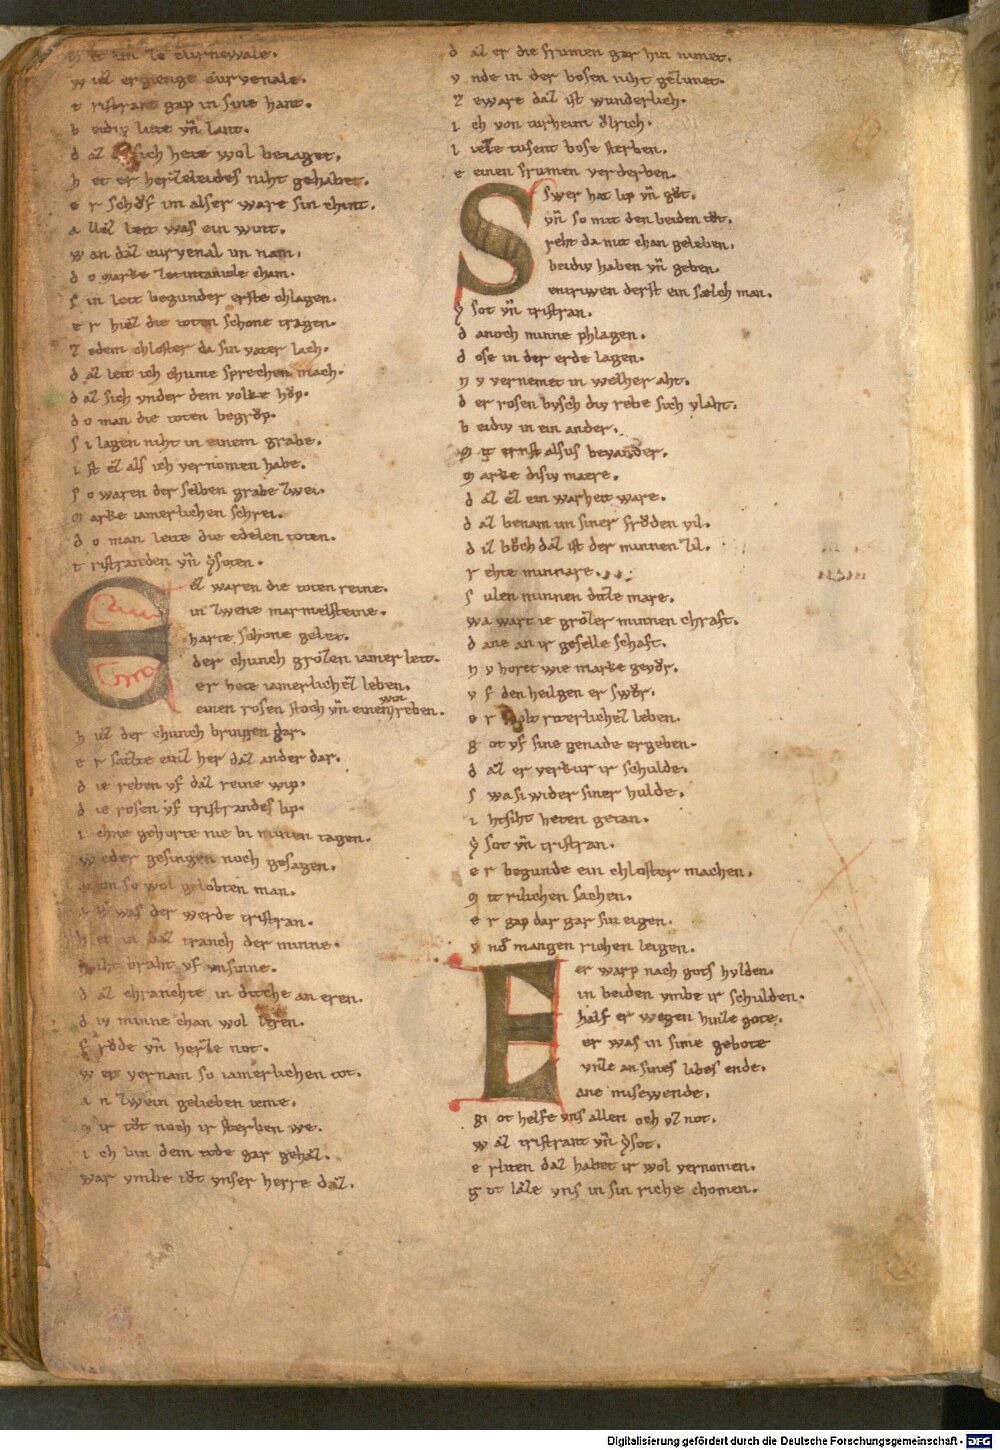 h et im ze curnewale.
w iez ergienge curvenale.
t ristrant gap in sine hant.
b eidiv liete vn̄ lant.
d az sich hete wol beiaget.
h et er herzeleides niht gehabet.
e r schůf im alser ware sin chint.
a llez leit was ein wint.
w an daz curvenal im nam.
d o marke ze tintaniole cham.
s in leit begunder erste chlagen.
e r hiez die toten schone tragen.
z edem chloster da sin vater lach.
d az leit ich chume sprechen mach.
d az sich vnder dem volke hůp.
d o man die toten begrůp.
s i lagen niht in einem grabe.
i st ez als ich vernomen habe.
s o waren der selben grabe zwei.
m arke iamerlichen schrei.
d o man leite die edelen toten.
t ristranden vn̄ ẏsoten.
Ez waren die toten reine.
in zwene marmelsteine.
harte schone geleit.
der chunch grozen iamer leit.
er hete iamerlichez leben.
einen rosen stoch vn̄ einen win reben.
h iez der chunch bringen dar.
e r sazte einz her daz ander dar.
d ie reben vf daz reine wip.
d ie rosen vf tristrandes lip.
i chne gehorte nie bi minen tagen.
w eder gesingen noch gesagen.
v on so wol gelobten man.
was der werde tristran.
h et in daz tranch der minne.
niht braht vf vnsinne.
d az chranchte in dicche an eren.
d iv minne chan wol leren.
f rôde vn̄ herze not.
w ep vernam so iamerlichen tot.
a n zwein gelieben teme.
m ir tůt noch ir sterben we.
i ch bin dem tode gar gehaz.
war vmbe tůt vnser herre daz.
d az er die frumen gar hin nimet.
v nde in der bosen niht gezimet.
z eware daz ist wunderlich.
i ch von turheim ůlrich.
i ieze tusent bose sterben.
e einen frumen verderben.
Swer hat lip vn̄ gůt.
vn̄ so mit den beiden tůt.
reht da mit chan geleben.
beidiv haben vn̄ geben.
entriwen derst ein sælch man.
ẏ sot vn̄ tristran.
d anoch minne phlagen.
d ose in der erde lagen.
n v vernemet in welher aht.
d er rosen bvsch div rebe sich vlaht.
b eidiv in ein ander.
m it ernst alsus bevander.
m arke disiv maere.
d az ez ein warheit ware.
d az benam im siner frôden vil.
d iz bůch daz ist der minnen zil.
r ehte minnare.
s ulen minnen dicze mare.
wa wart ie grôzer minnen chraft.
d ane an ir geselle schaft.
n v horet wie marke gevůr.
v f den heilgen er swůr.
e r wolt riterlichez leben.
g ot vf sine genade ergeben.
d az er verkur ir schulde.
s wa si wider siner hulde.
i htsiht heten getan.
ẏ sot vn̄ tristran.
e r begunde ein chloster machen.
m it rilichen sachen.
e r gap dar gar sin eigen.
v nd mangen richen leigen.
Er warp nach gots hvlden.
in beiden vmbe ir schulden.
half er wegen hinze gote.
er was in sime gebote
vnze an sines libes ende.
ane misewende.
g ot helfe vns allen och vz not.
w az tristrant vn̄ ẏsot.
e rliten daz habet ir wol vernomen.
g ot laze vns in sin riche chomen.
Digitalisierung gefördert durch die Deutsche Forschungsgemeinschaft - DFG